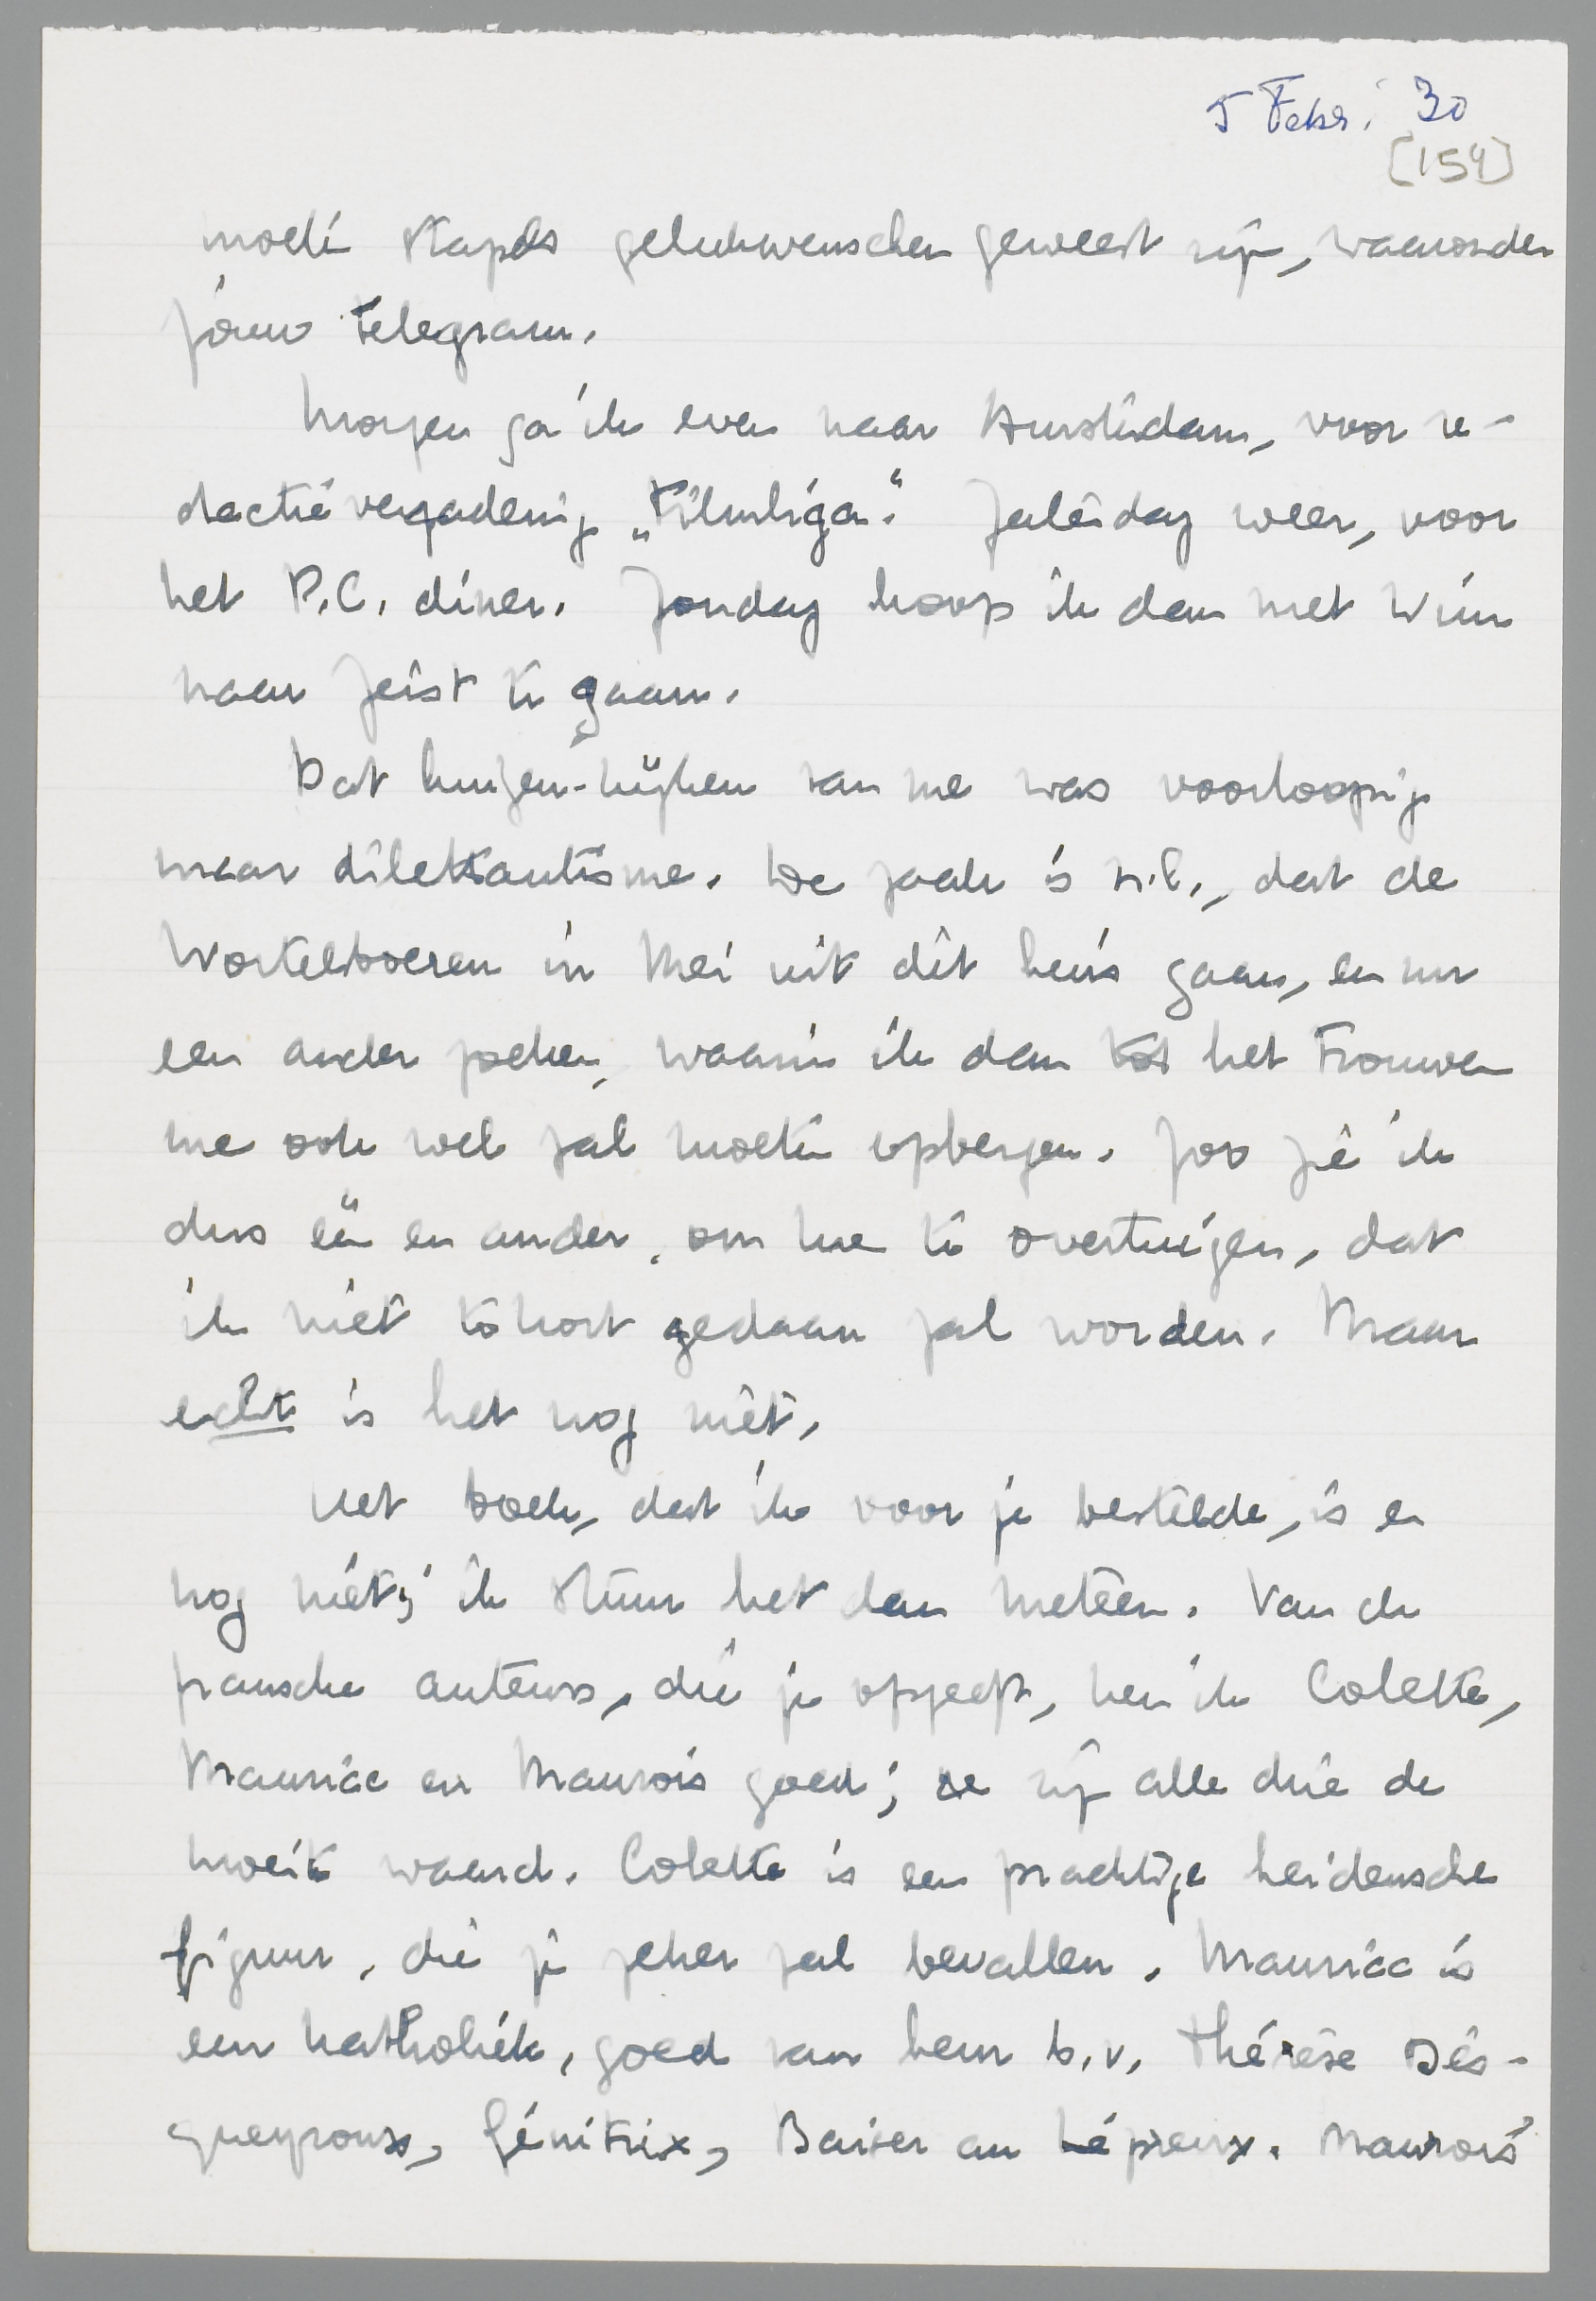 5 Febr. '30
[154]
moeten stapels gelukwenschen geweest zijn, waaronder
jouw telegram.
Morgen ga ik even naar Amsterdam, voor re-
dactievergadering „Filmliga". Zaterdag weer, voor
het P.C. diner. Zondag hoop ik dan met Wim
naar Zeist te gaan.
Dat huizen-kijken van me was voorloopig
maar dilettantisme. De zaak is n.l., dat de
Wortelboeren in Mei uit dit huis gaan, en nu
een ander zoeken, waarin ik dan tot het trouwen
me ook wel zal moeten opbergen. Zoo zie ik
dus één en ander, om me te overtuigen, dat
ik niet tekort gedaan zal worden. Maar
echt is het nog niet.
Het boek, dat ik voor je bestelde, is er
nog niet; ik stuur het dan meteen. Van de
fransche auteurs, die je opgeeft, ken ik Colette,
Mauriac en Maurois goed; ze zijn alle drie de
moeite waard. Colette is een prachtige heidensche
figuur, die je zeker zal bevallen. Mauriac is
een katholiek, goed van hem b.v. Thérèse Des-
queyroux, Génitrix, Baiser au Lépreux. Maurois